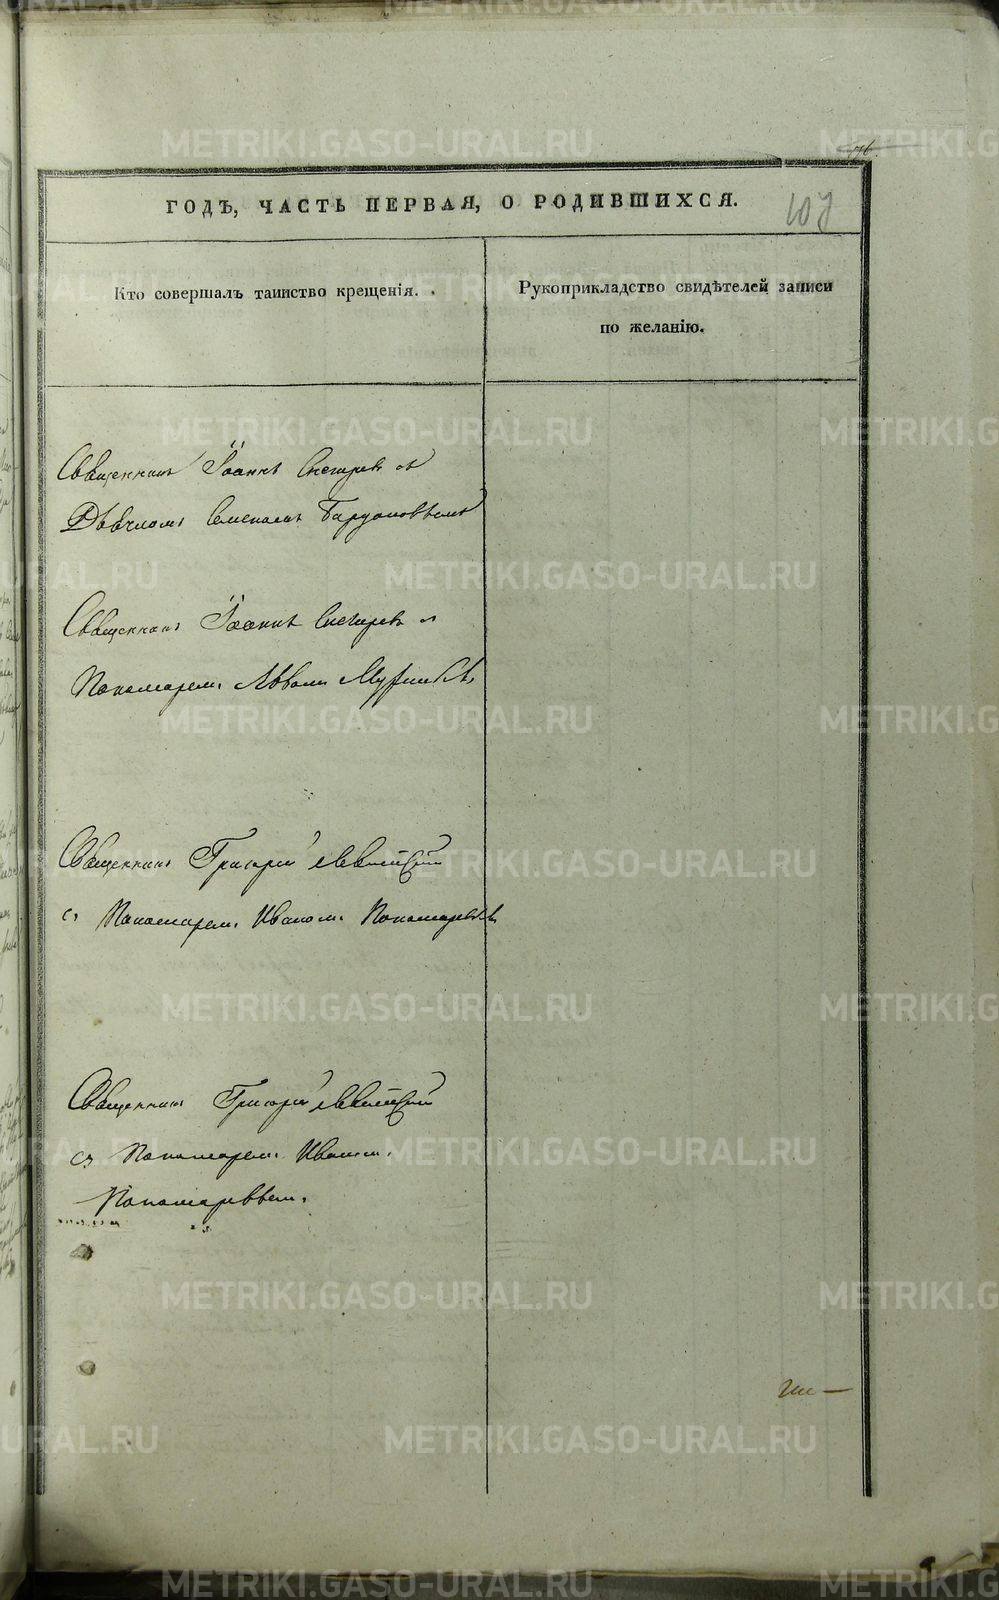 76
ГОДЪ, ЧАСТЬ ПЕРВАЯ, О РОДИВШИХСЯ.
107
Кто совершалъ таинство крещенія.
Рукоприкладство свидѣтелей записи
по желанію.
Священникъ Іоаннъ Снегирев съ
Дьячкомъ Семеномъ
Священникъ Іоаннъ Снегирев съ
Пономаремъ
Священникъ Григорій
съ Пономаремъ Иваномъ Пономаревымъ
Священникъ Григорій
съ Пономаремъ Иваномъ
Пономаревымъ
METRIKI.GASO-URAL.RU